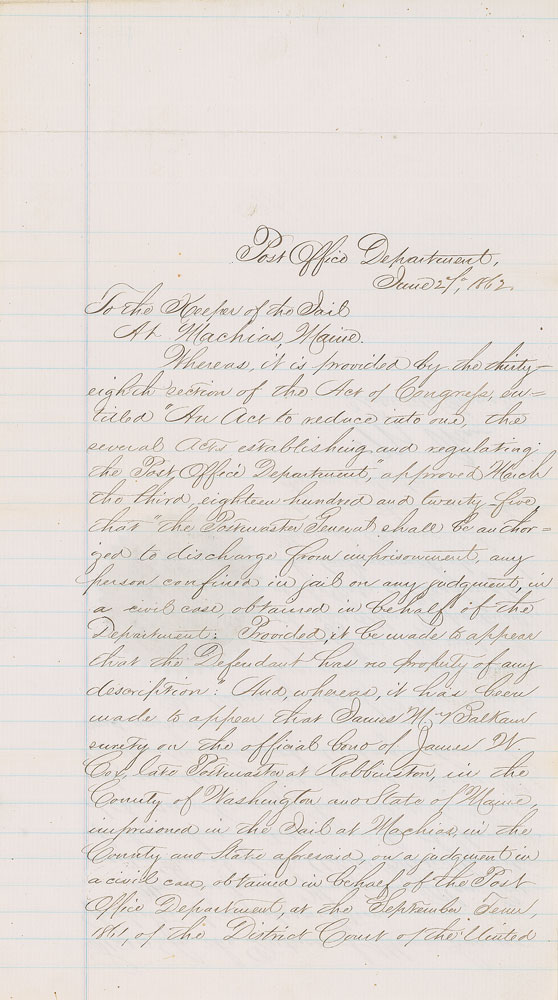 Post Office Department,
June 27th, 1862
To the Keeper of the Jail
At Machias, Maine.
Whereas, it is provided by the thirty-
eighth section of the Act of Congress, en=
titled "An Act to reduce into one, the
several Acts establishing and regulating
the Post Office Department," approved March
the third, eighteen hundred and twenty five,
that "the Postmaster General shall be author=
ized to discharge from imprisonment, any
person confined in jail on any judgment, in
a civil case, obtained in behalf of the
Department: Provided, it be made to appear
that the Defendant has no property of any
description: And, whereas, it has been
made to appear that James M. Balkam
surety on the official bond of James W.
Cox, late Postmaster at Robbinston, in the
County of Washington and State of Maine,
imprisoned in the Jail at Machias, in the
County and State aforesaid, on a judgment in
a civil case, obtained in behalf of the Post
Office Department, at the September Term,
1861, of the District Court of the United